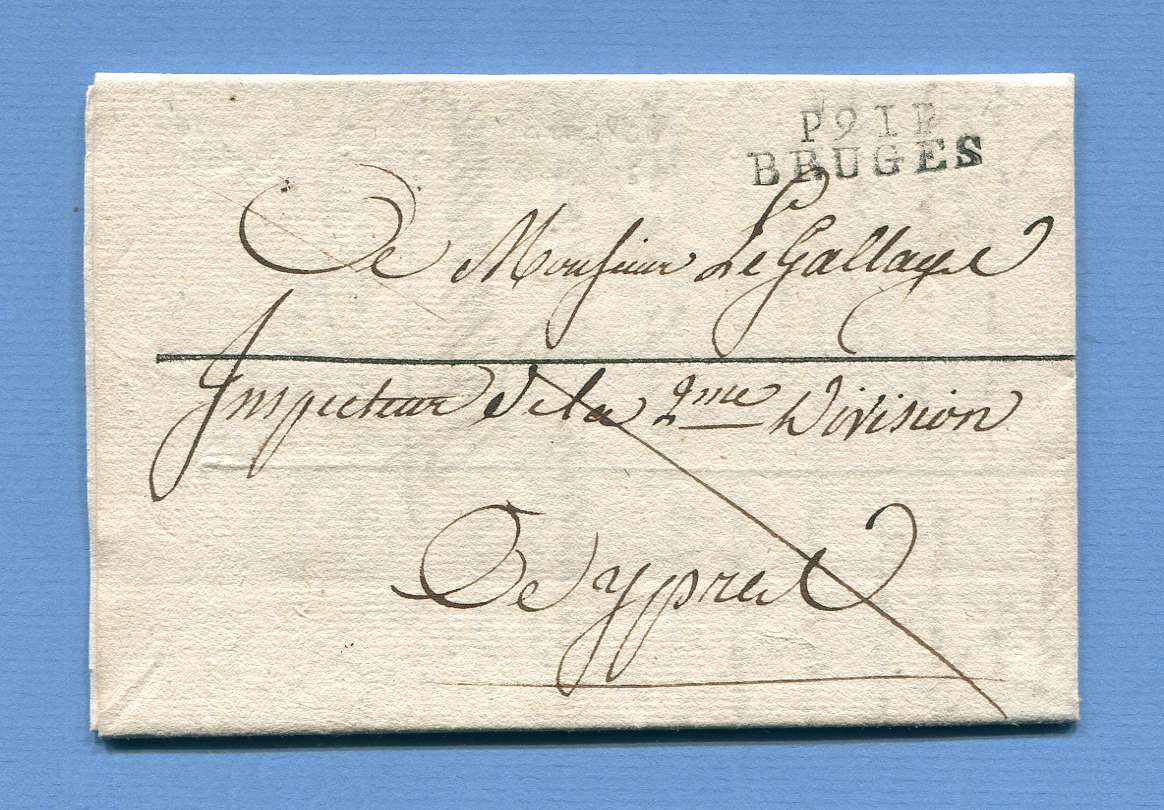 P91P
BRUGES
De Monsieur LeGallage
Inspecteur de la 2me Division
De ypres